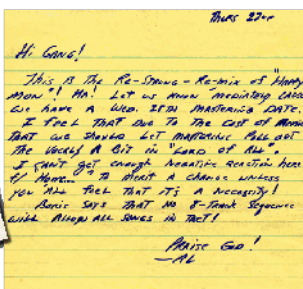 Thurs 27th
Hi Gang!
This is the Re-Strung - Re-mix of "Happy
Mon"! Ha! Let us know 'mediately cause
we have a Wed. 28th mastering date.
I feel that due to the cost of
that we should let mastering pull out
the vocals a bit in "Lord of All".
I can't get enough negative reaction here
to merit a change unless
you all feel that it's a necessity!
Boris says that no 8-Track sequence
will allow all songs in tact!
Praise God!
—AL